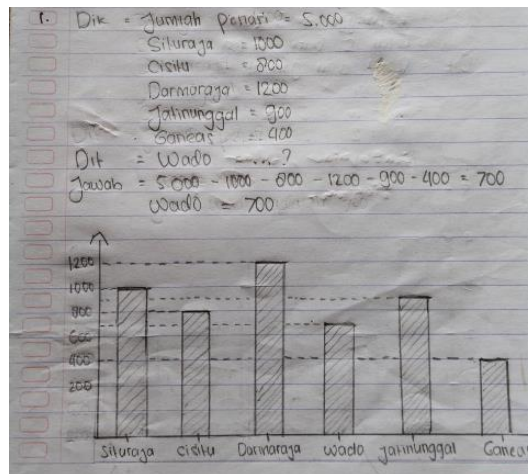 1. Dik = Jumlah Penari = 5.000
Situraja = 1000
Cisitu = 800
Darmaraja = 1200
Jatinunggal = 900
Ganeas = 400
Dit = Wado ....?
Jawab = 5.000 - 1000 - 800 - 1200 - 900 - 400 = 700
Wado = 700
1200
1000
800
600
400
200
Situraja Cisitu Darmaraja Wado Jatinunggal Ganea